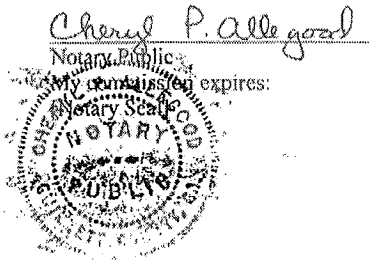 Cheryl P. Allegood
Notary Public
My commission expires:
Notary Seal
NOTARY
PUBLIC